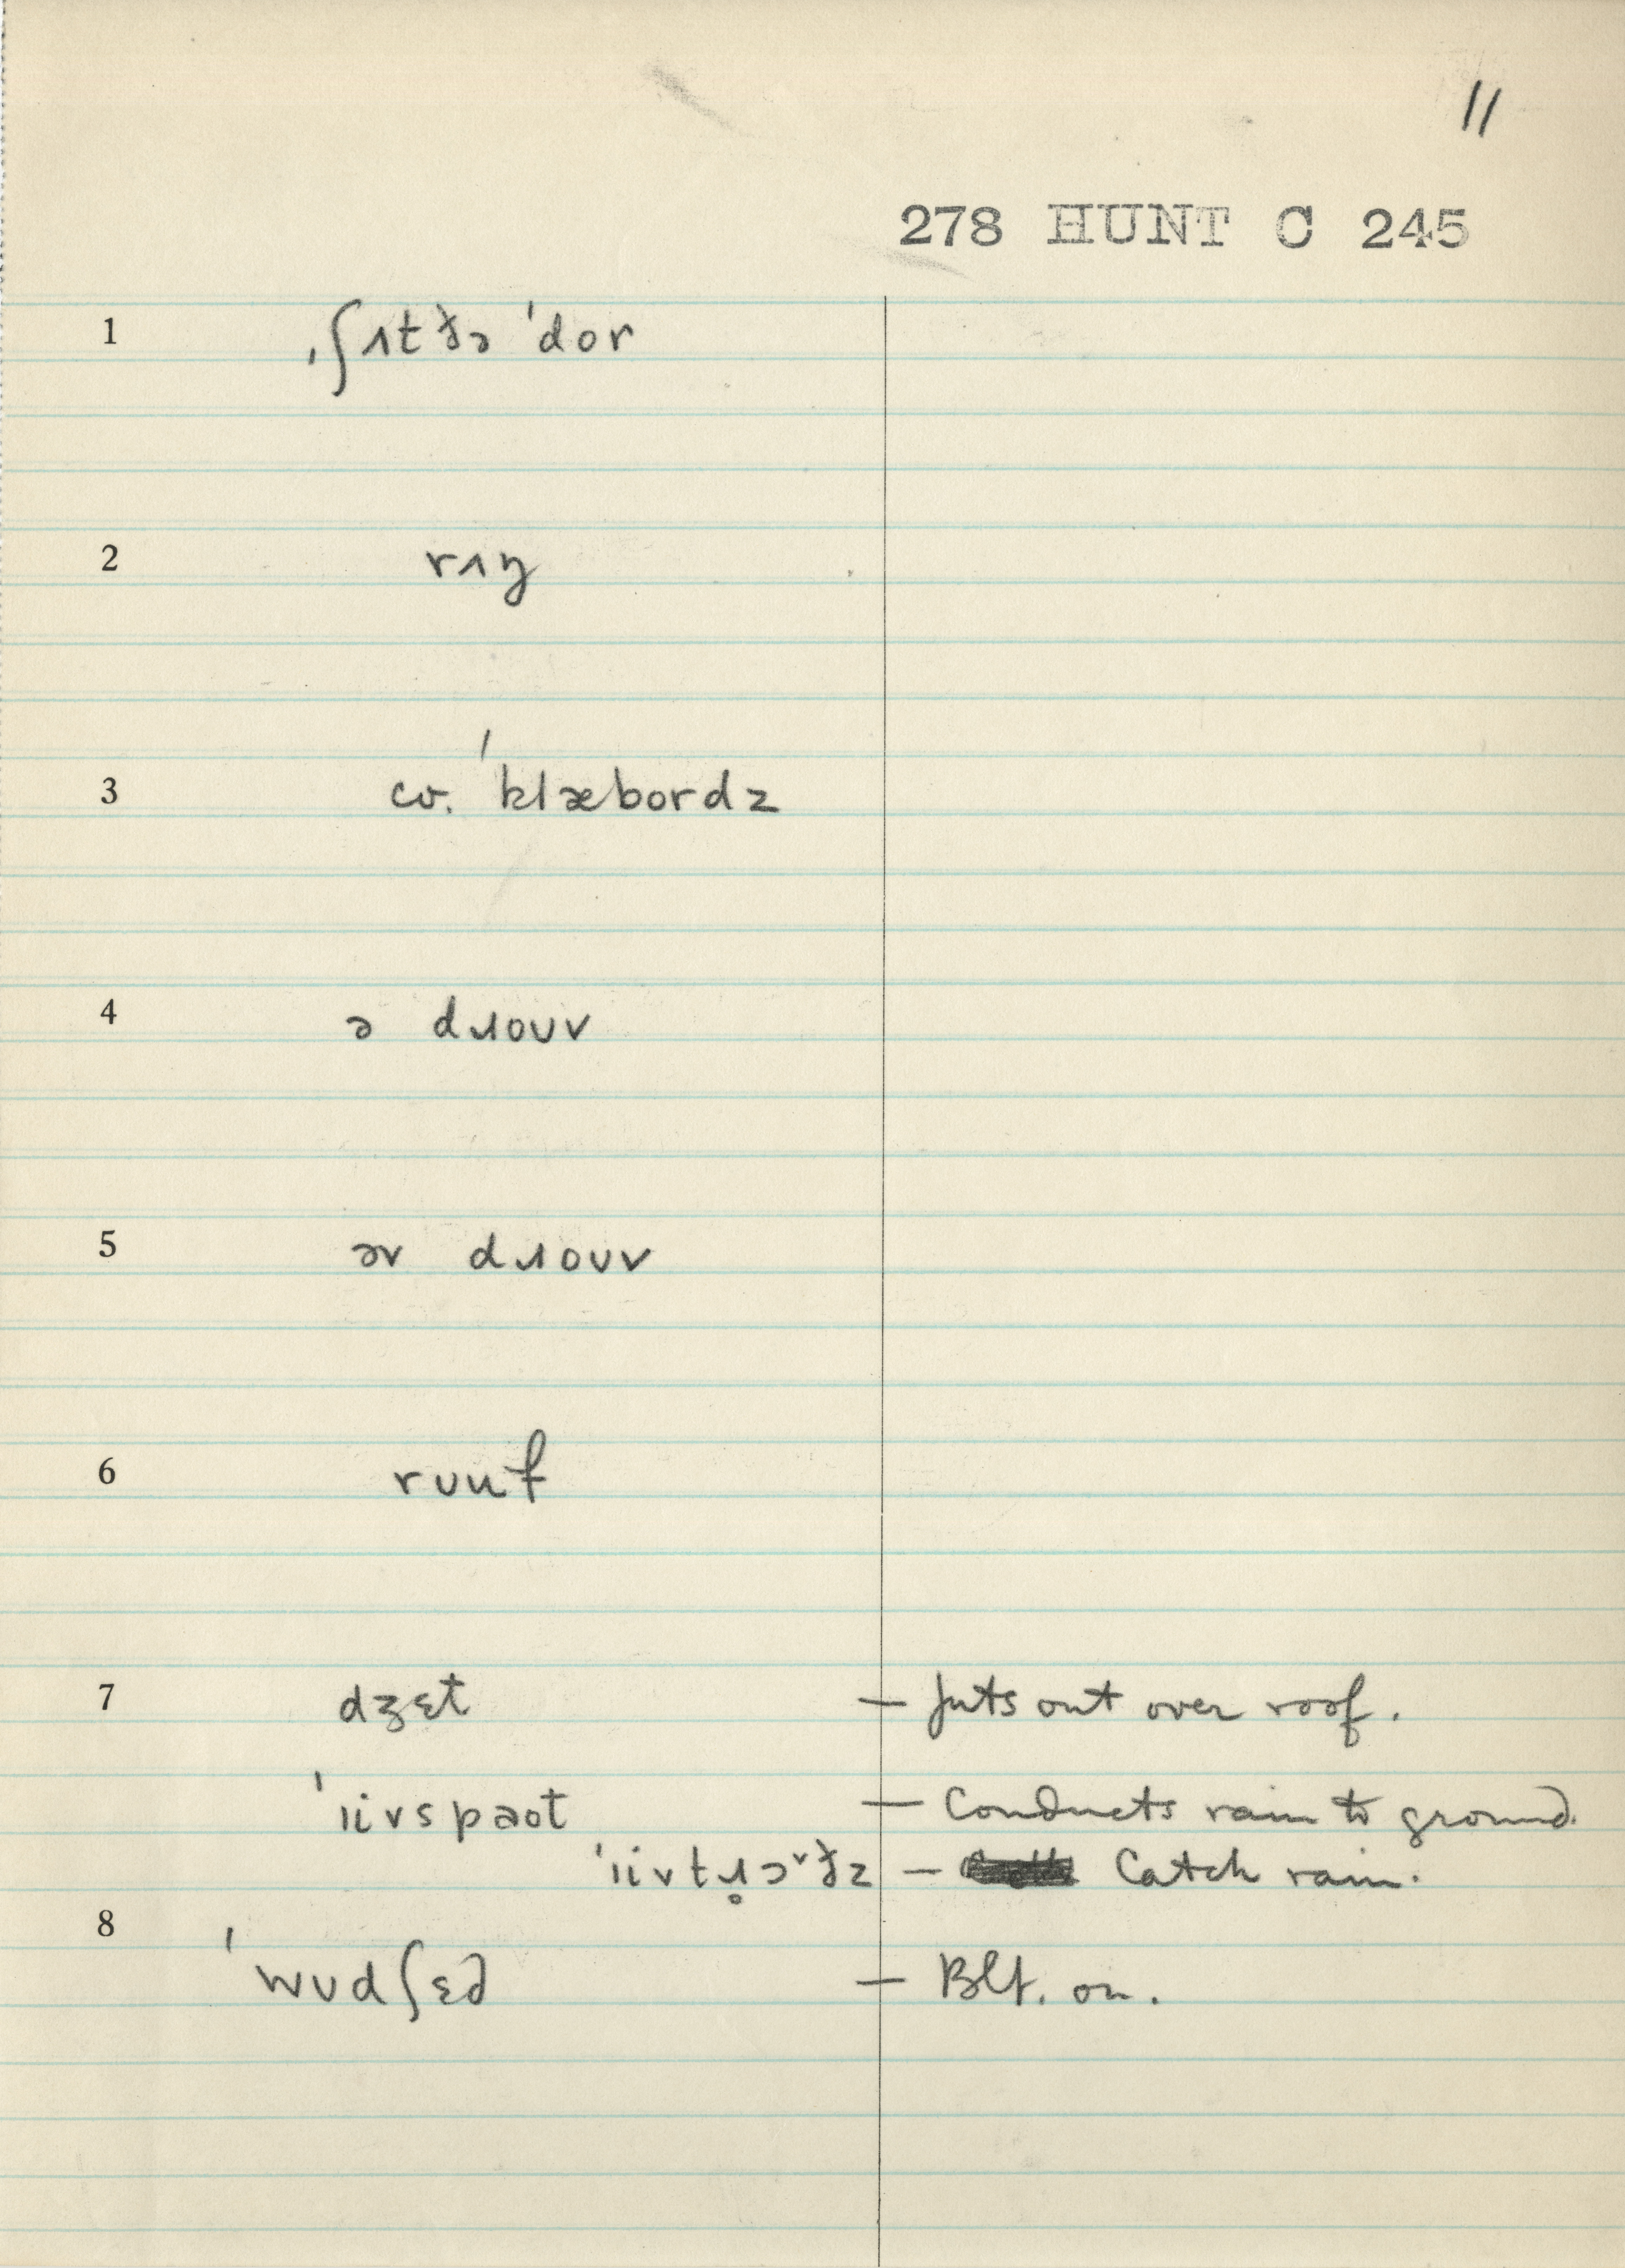 11
278 HUNT C 245
1 ˌʃɪt ðə ˈdor
2 rɪŋ
3 cv. ˈklæbordz
4 ə dɹoʊv
5 əv dɹoʊv
6 rʊuf
7 dʒɛt — Juts out over roof.
ˈiivspəot — Conducts rain to ground.
— Catch rain.
8 ˈwʊdʃɛd — Blt. on.